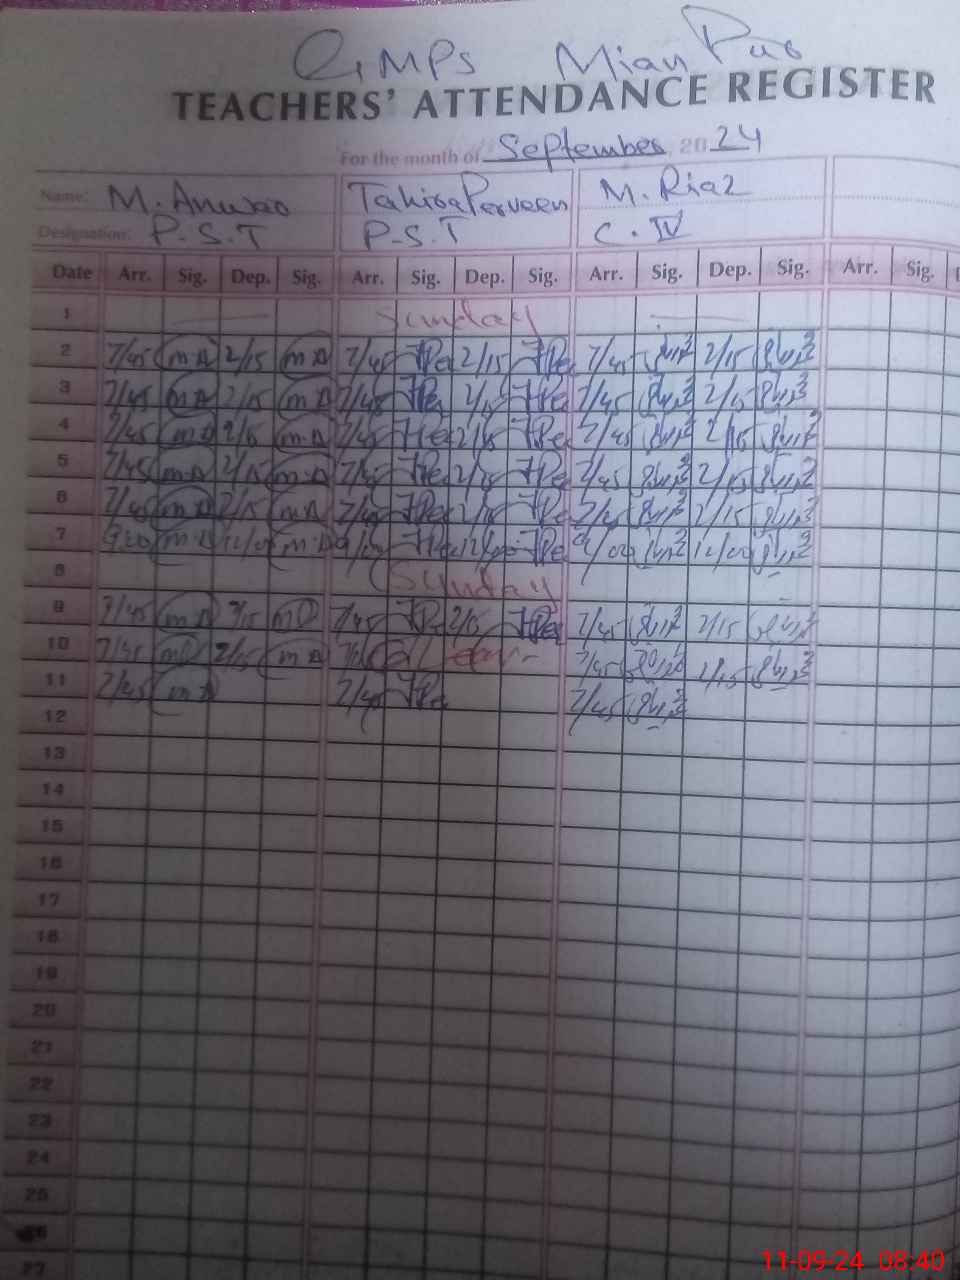 GMPS Mian Pur
TEACHERS' ATTENDANCE REGISTER
For the month of September 2024
Name: M. Anwar Tahira Perveen M. Riaz
Designation: P.S.T P.S.T C.IV
Date Arr. Sig. Dep. Sig. Arr. Sig. Dep. Sig. Arr. Sig. Dep. Sig. Arr. Sig.
1 Sunday
2 7/45 M.A 2/15 M.A 7/45 TPe 2/15 TPe 7/45 2/15
3 7/45 M.A 2/15 M.A 7/45 TPe 2/15 TPe 7/45 2/15
4 7/45 M.A 2/15 M.A 7/45 TPe 2/15 TPe 7/45 2/15
5 7/45 M.A 2/15 M.A 7/45 TPe 2/15 TPe 7/45 2/15
6 7/45 M.A 2/15 M.A 7/45 TPe 2/15 TPe 7/45 2/15
7 9/00 M.A 12/00 M.A 9/00 TPe 12/00 TPe 9/00 12/00
8 Sunday
9 7/45 M.A 2/15 M.A 7/45 TPe 2/15 TPe 7/45 2/15
10 7/45 M.A 2/15 M.A 7/45 2/15
11 7/45 M.A 7/45 TPe 7/45
12
13
14
15
16
17
18
19
20
21
22
23
24
25
26
27
11-09-24 08:40